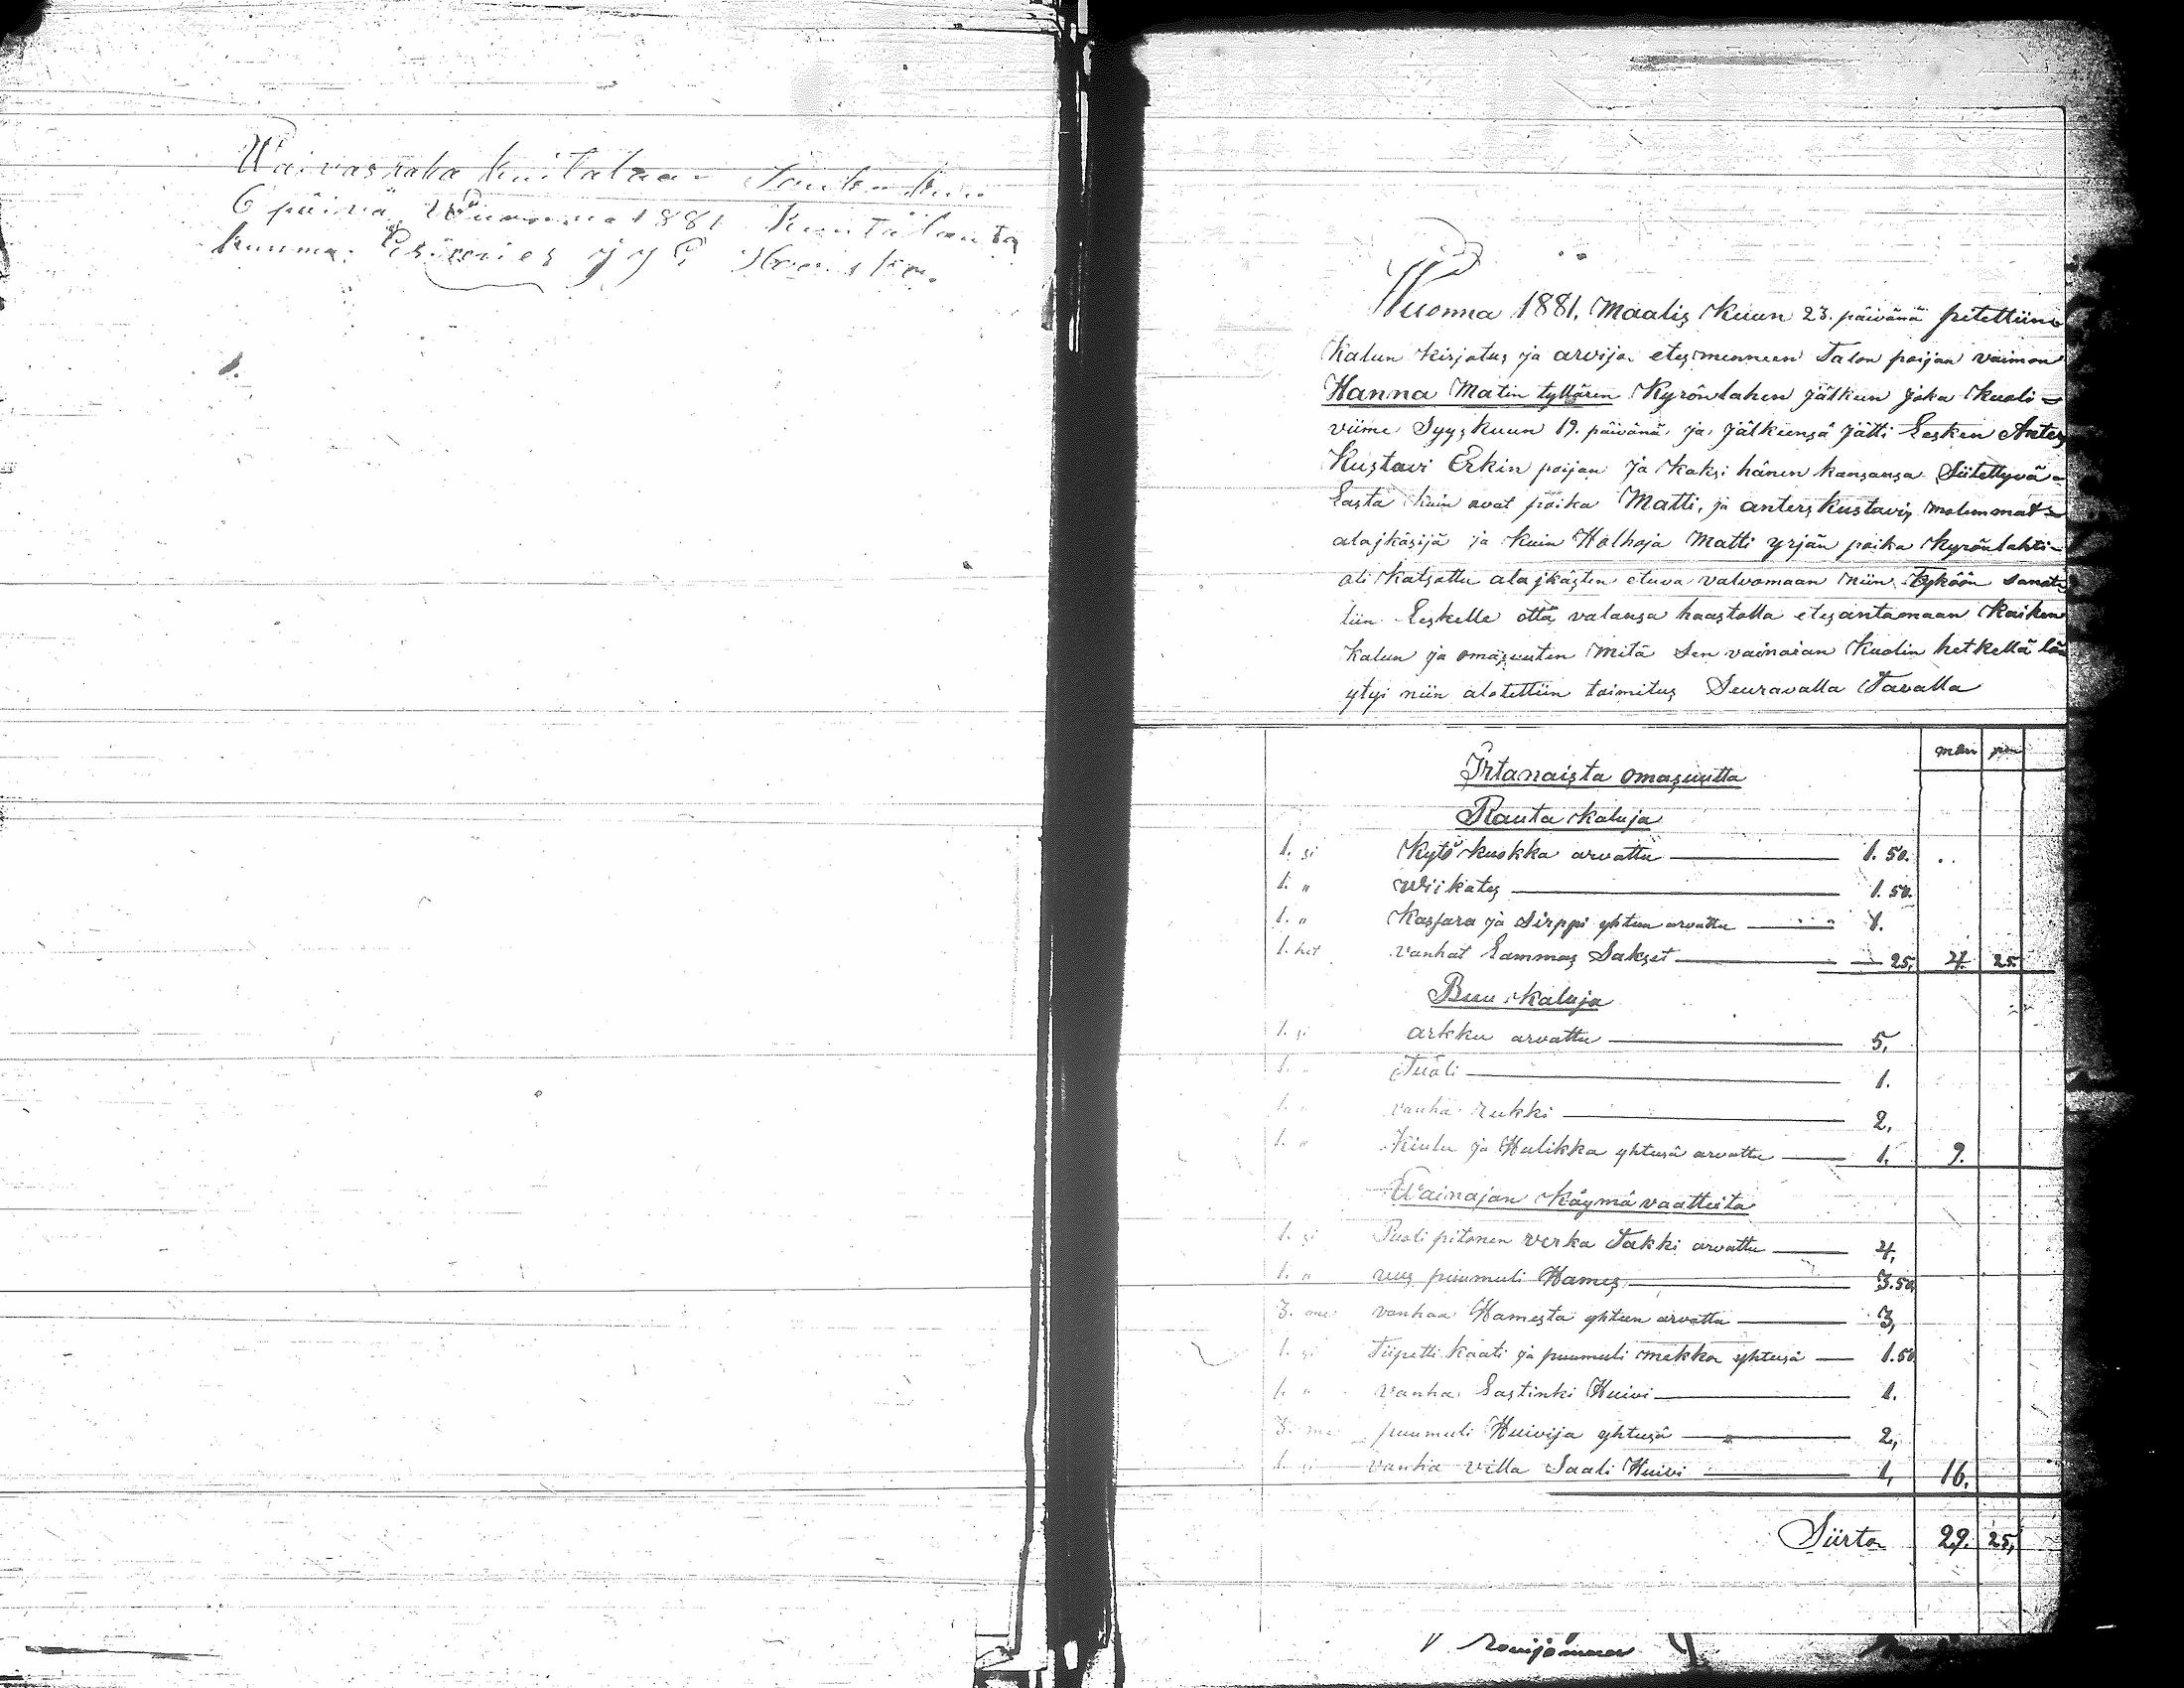 Waivasraha kuitataan Toukokuu
6 päivä Wuonna 1881 Kuntalauta
kunna Esimies
Wuonna 1881. Maalis Kuun 23. päivänä pitettiin
Kalun kirjotus ja arvijo etesmenneen Talon poijan vaimon
Hanna Matin tyttären Kyrönlahen jälkeen joka Kuoli
viime Syyskuun 19. päivänä ja jälkeensä jätti Lesken Anters
Kustavi Erkin poijan ja kaksi hänen kansansa Siitettyvä
Lasta kuin ovat poika Matti, ja anters kustavi, molemmat
alajkäsijä ja kuin Holhoja Matti yrjän poika Kyrönlahti
oli katsottu alajkästen etuva valvomaan niin tyköön sanotu
tiin Leskelle että valansa haastolla etesantamaan Kaiken
Kalun ja omasuuten mitä Sen vainaian Kuolin hetkellä löü
ytyi niin alotettiin toimitus Seuravalla Tavalla
man pen
Irtanaista omasuutta
Rauta Kaluja
1. si Kytö kuokka arvattu 1. 50.
1. " Wiikates 1. 50.
1. " Kassara ja Sirppi yhteen arvattu 1.
1. het vanhat Lammas Sakset 25, 4. 25
Buu Kaluja
1. si arkku arvattu 5,
1. " Tuoli 1.
1. " vanha rukki 2,
1. " Kiulu ja Hulikka yhtesä arvattu 1. 9.
Wainajan Käymä vaatteita
1. si Puoli pitonen verka Takki arvattu 4,
1. " uus puumuli Hames 3.50
3. me vanhaa Hamesta yhteen arvattu 3,
1. si Tiipetti kaati ja puumuli mekko yhtesä 1.50
1. " vanha Lastinki Huivi 1.
3. me puumuli Huivija yhtesä 2,
1. si vanha villa Saali Huivi 1, 16.
Siirto 29. 25,